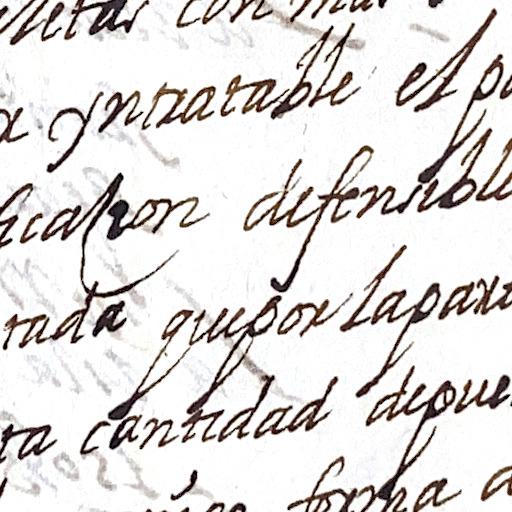 con mas
yntratable el
defensible
tada que por la part
ta cantidad depue
forma